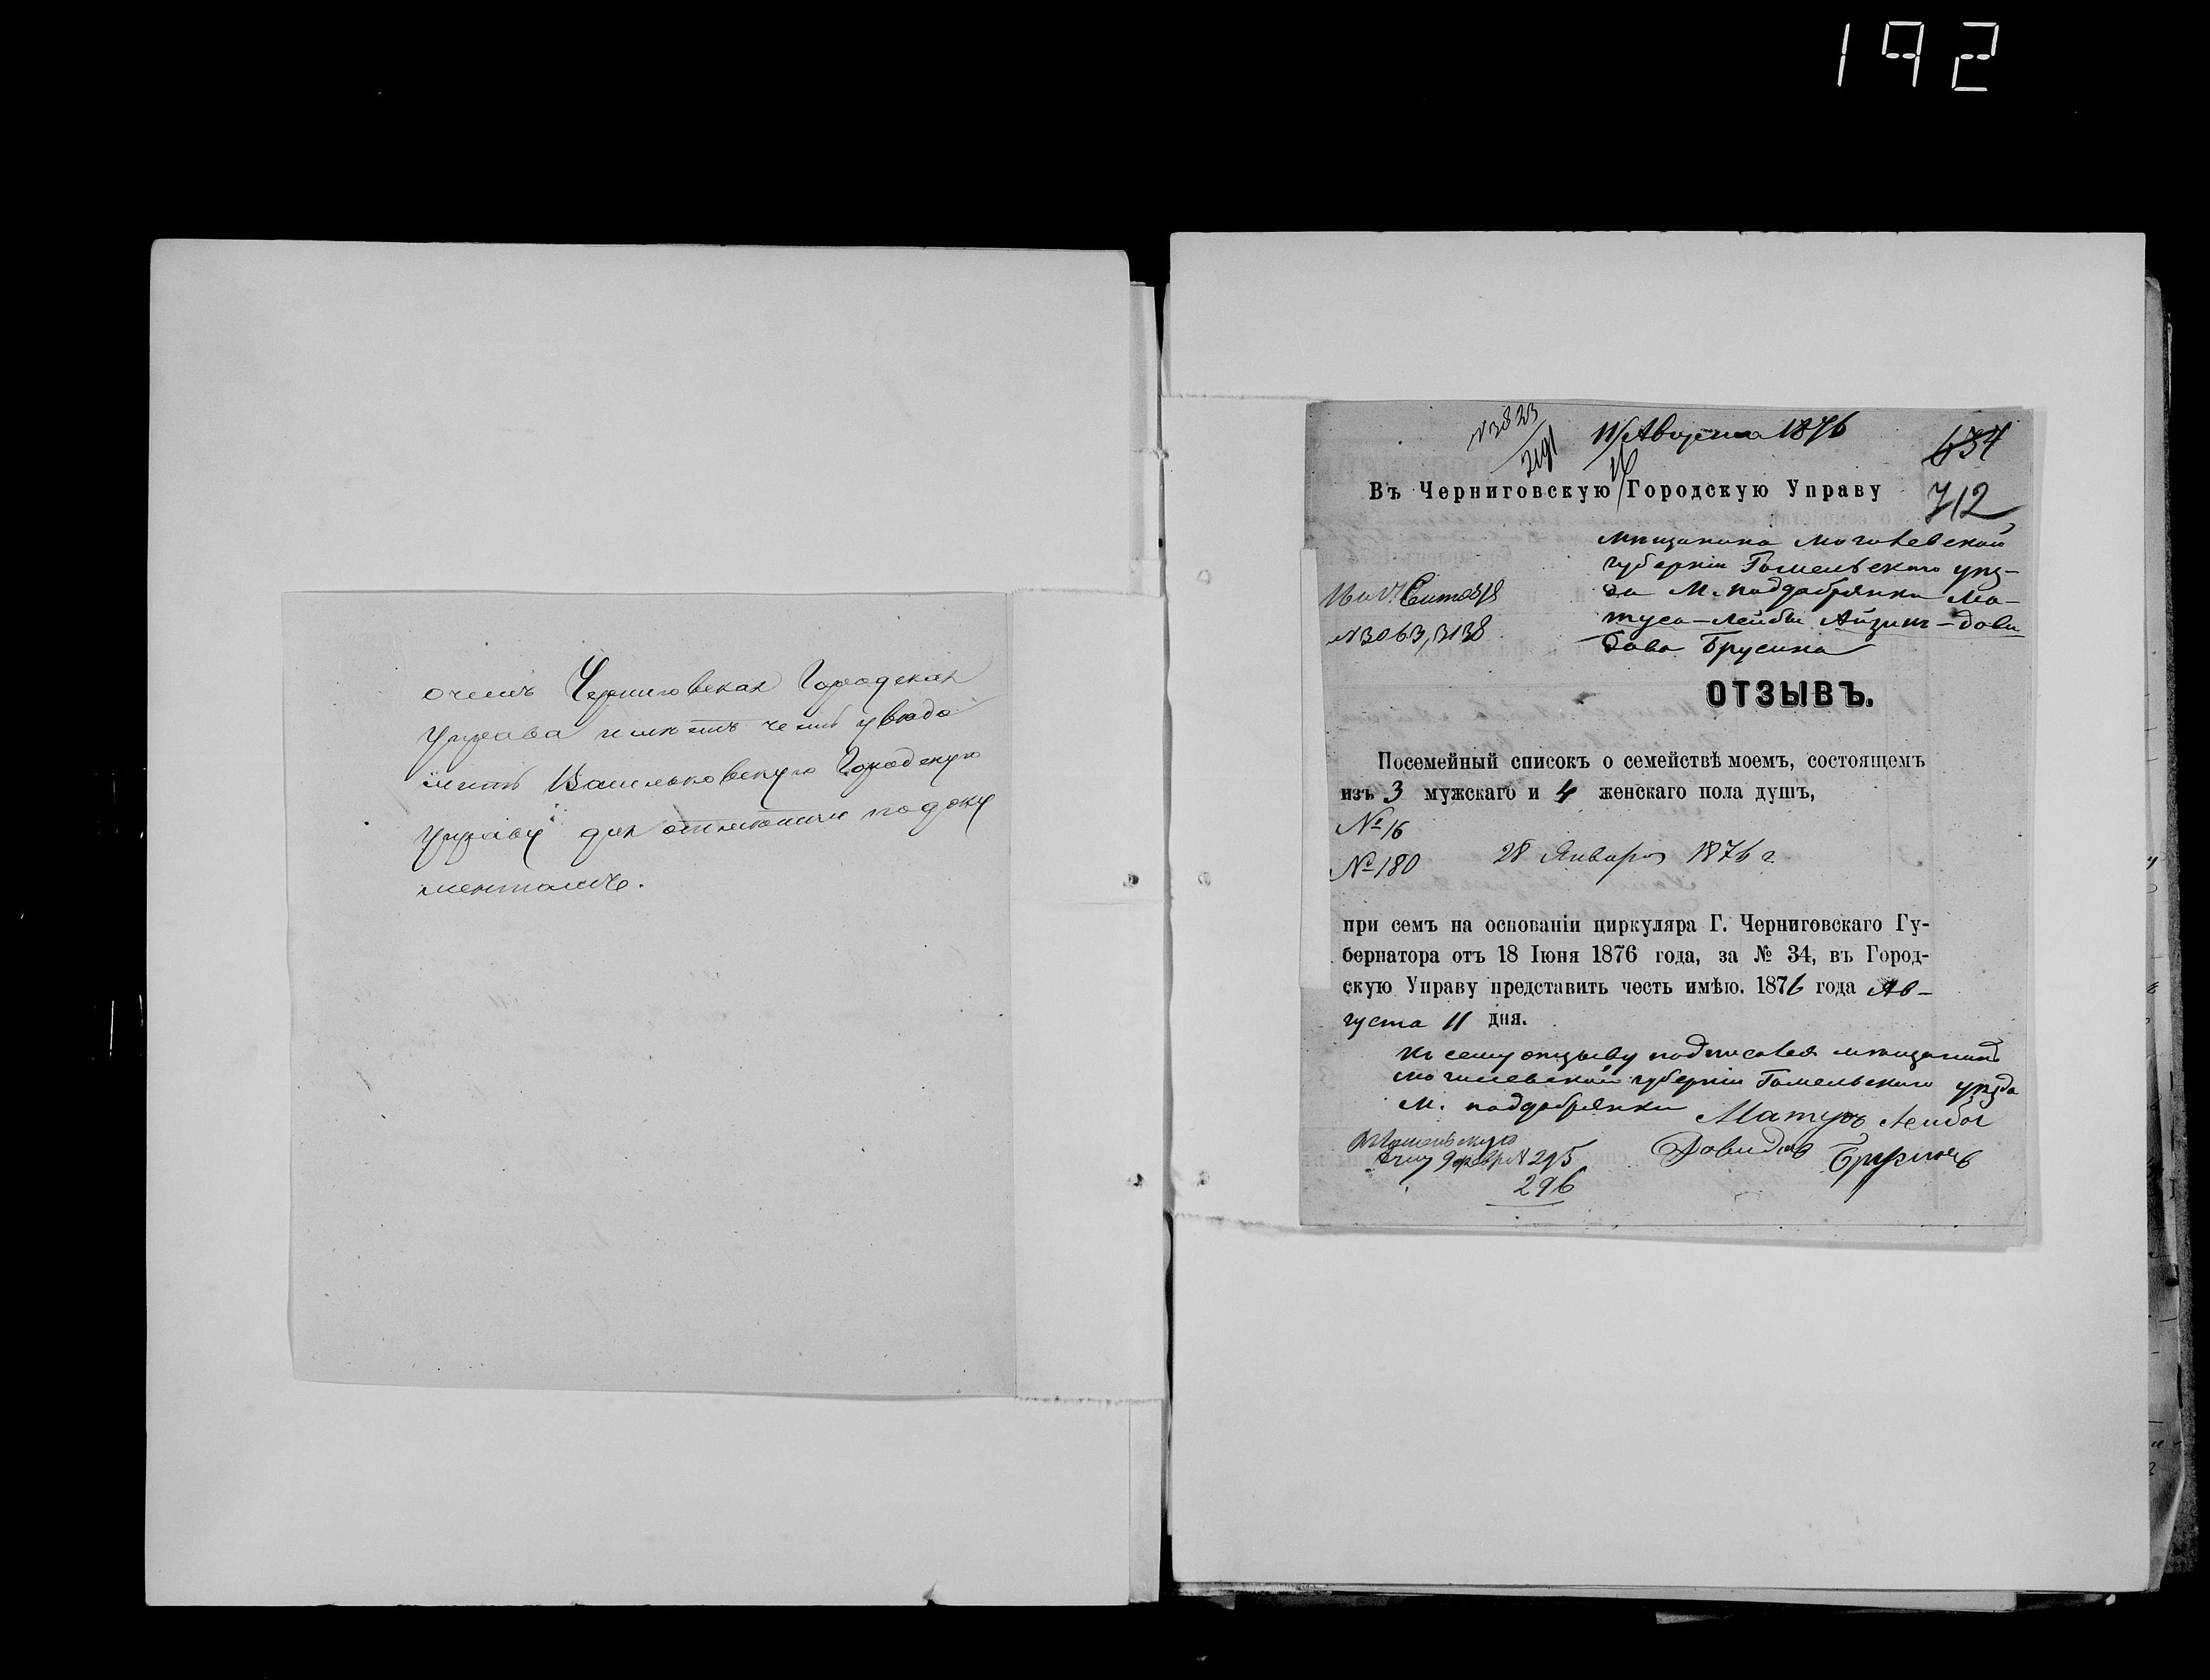 192
о чемъ Черниговская Городская
Управа имѣетъ честь увѣдо
мить Васильковскую Городскую
Управу для отмѣтки по доку
ментамъ.
№ 3823
2191
11 Августа 1876
634
712
Въ Черниговскую Городскую Управу
мѣщанина Могилевской
губерніи Гомельскаго уѣз-
да М. Поддобрянки Ма-
туса-Лейбы Айзик-Дави
дова Брусина
№ 3063, 3138
ОТЗЫВЪ.
Посемейный списокъ о семействѣ моемъ, состоящемъ
изъ 3 мужскаго и 4 женскаго пола душъ,
№ 16
№ 180 28 Января 1876 г.
при семъ на основаніи циркуляра Г. Черниговскаго Гу-
бернатора отъ 18 Іюня 1876 года, за № 34, въ Город-
скую Управу представить честь имѣю. 1876 года Ав-
густа 11 дня.
Къ сему отзыву подписался мѣщанинъ
Могилевской губерніи Гомельского уѣзда
М. Поддобрянки Матусъ Лейба
Давидов Брусинъ
№ 295
296